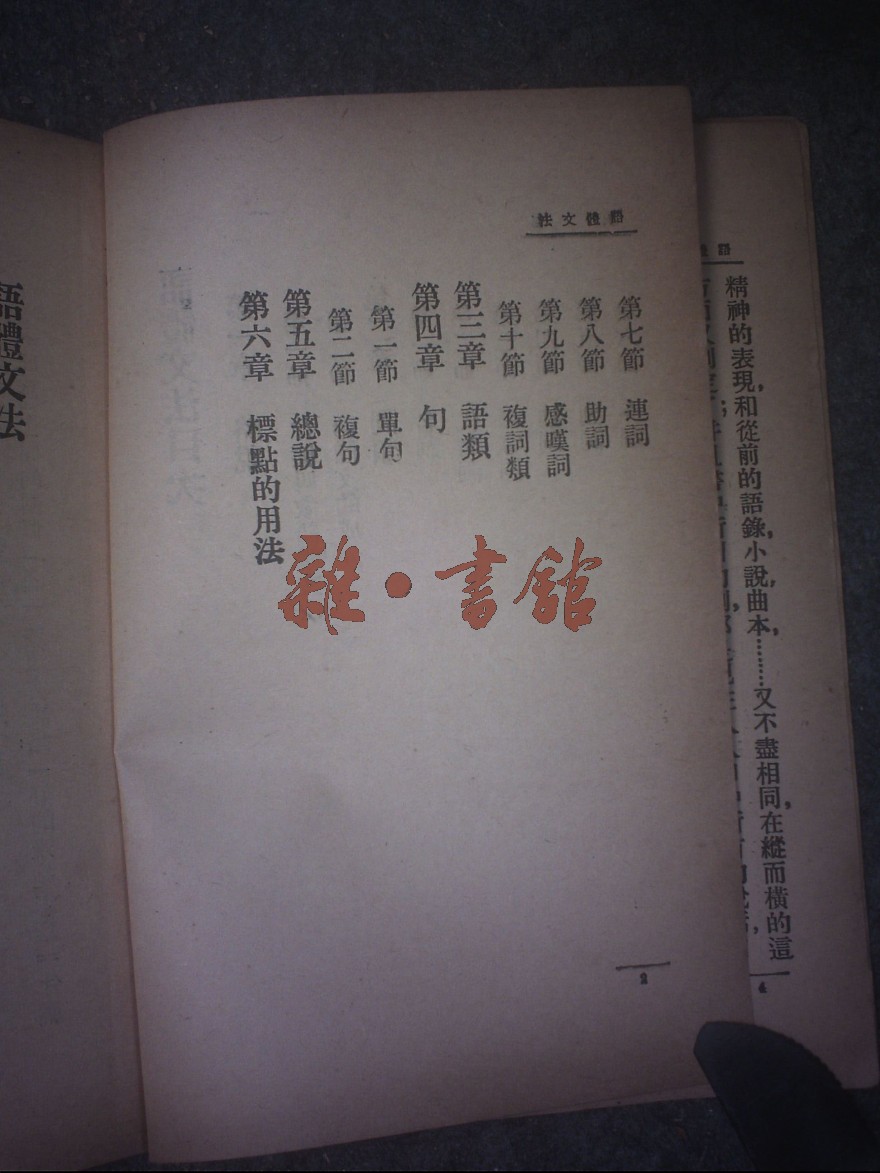 語體文法
第七節 連詞
第八節 助詞
第九節 感嘆詞
第十節 複詞類
第三章 語類
第四章 句
第一節 單句
第二節 複句
第五章 總說
第六章 標點的用法
2
雜·書舘
語體文法
精神的表現，和從前的語錄，小說，曲本，………又不盡相同，在縱而橫的這
4